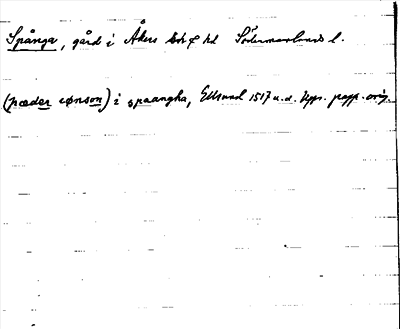 Spånga, gård i Åkers sk o hd Södermanlands l.
(pæder iønson) i spaangha, Eklsund 1517 u.d. Upps. papp. orig.